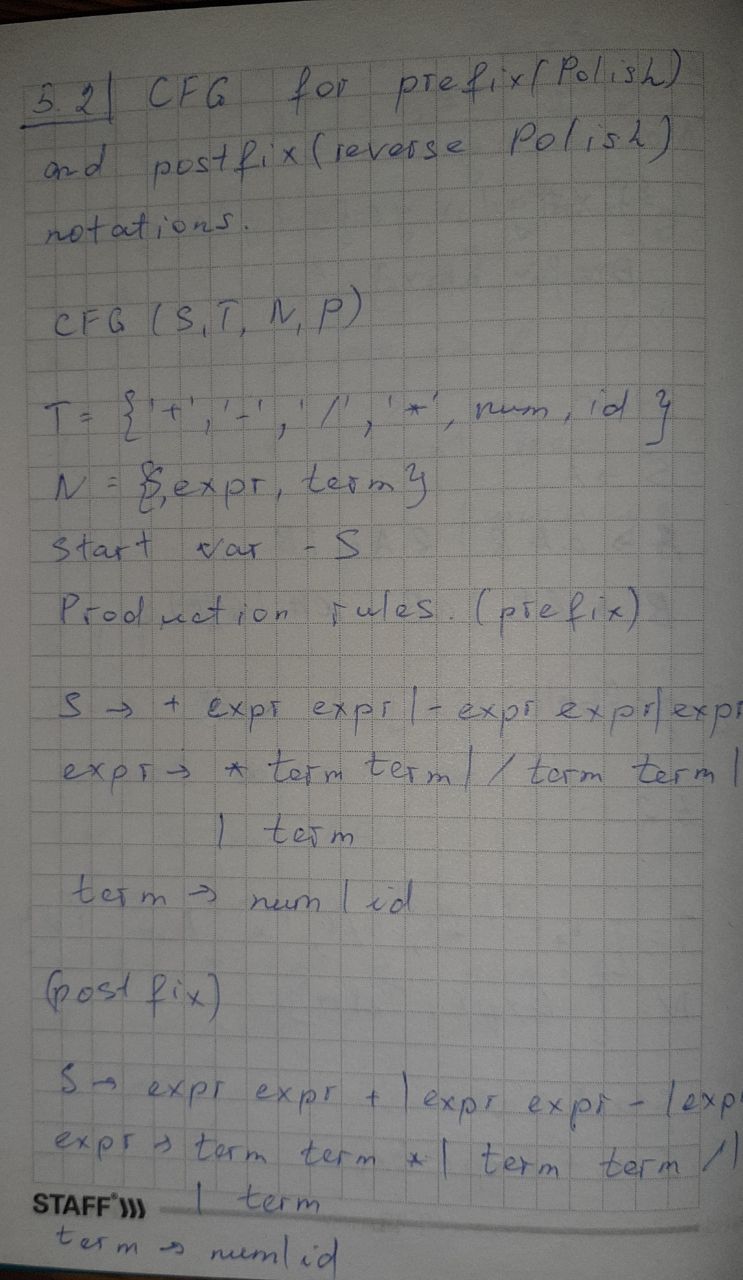 5.2| CFG for prefix(Polish)
and postfix(reverse Polish)
notations.
CFG (S, T, N, P)
T = {'+', '-', '/', '*', num, id }
N = {S, expr, term}
Start var - S
Production rules. (prefix)
S → + expr expr | - expr expr | expr
expr → * term term | / term term |
| term
term → num | id
(postfix)
S → expr expr + | expr expr - | exp
expr → term term * | term term / |
| term
STAFF
term → num | id